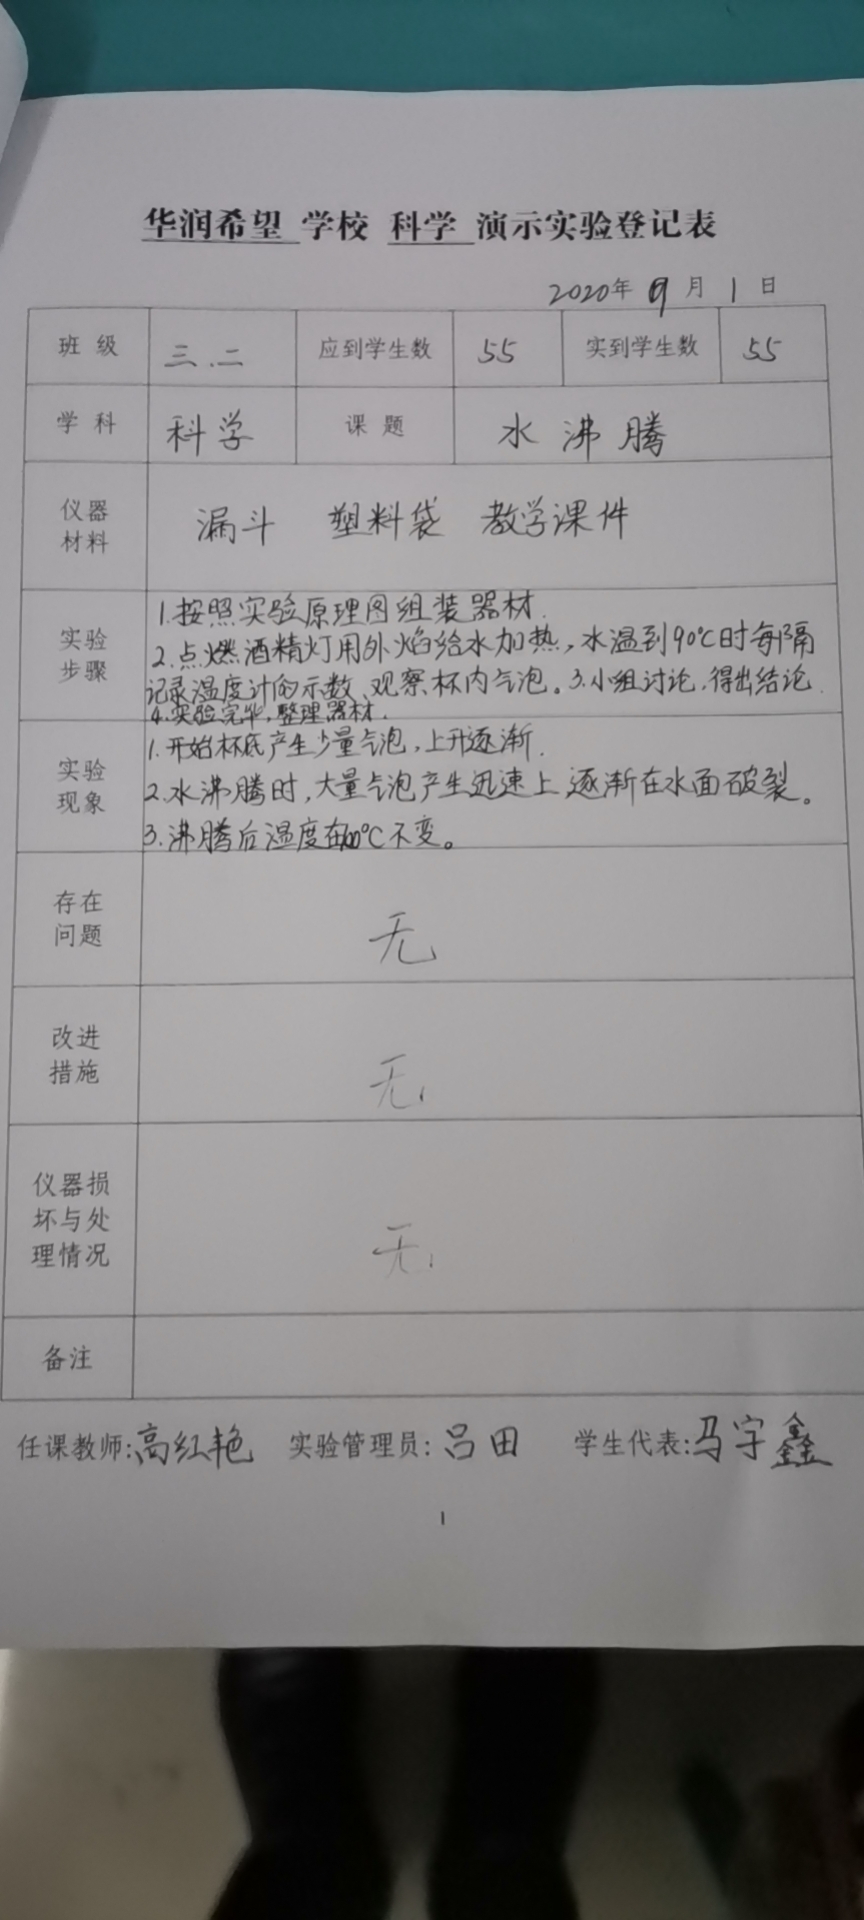 华润希望 学校 科学 演示实验登记表
2020年 9 月 1 日
班 级 三.二 应到学生数 55 实到学生数 55
学 科 科学 课 题 水 沸 腾
仪器
材料
漏斗 塑料袋 教学课件
实验
步骤
1.按照实验原理图组装器材.
2.点燃酒精灯用外焰给水加热,水温到90℃时每隔
记录温度计的示数、观察杯内气泡。3.小组讨论,得出结论.
4.实验完毕,整理器材.
实验
现象
1.开始杯底产生少量气泡,上升逐渐.
2.水沸腾时,大量气泡产生迅速上,逐渐在水面破裂。
3.沸腾后温度在100℃不变。
存在
问题
无
改进
措施
无
仪器损
坏与处
理情况
无
备注
任课教师:高红艳 实验管理员:吕田 学生代表:马宇鑫
1